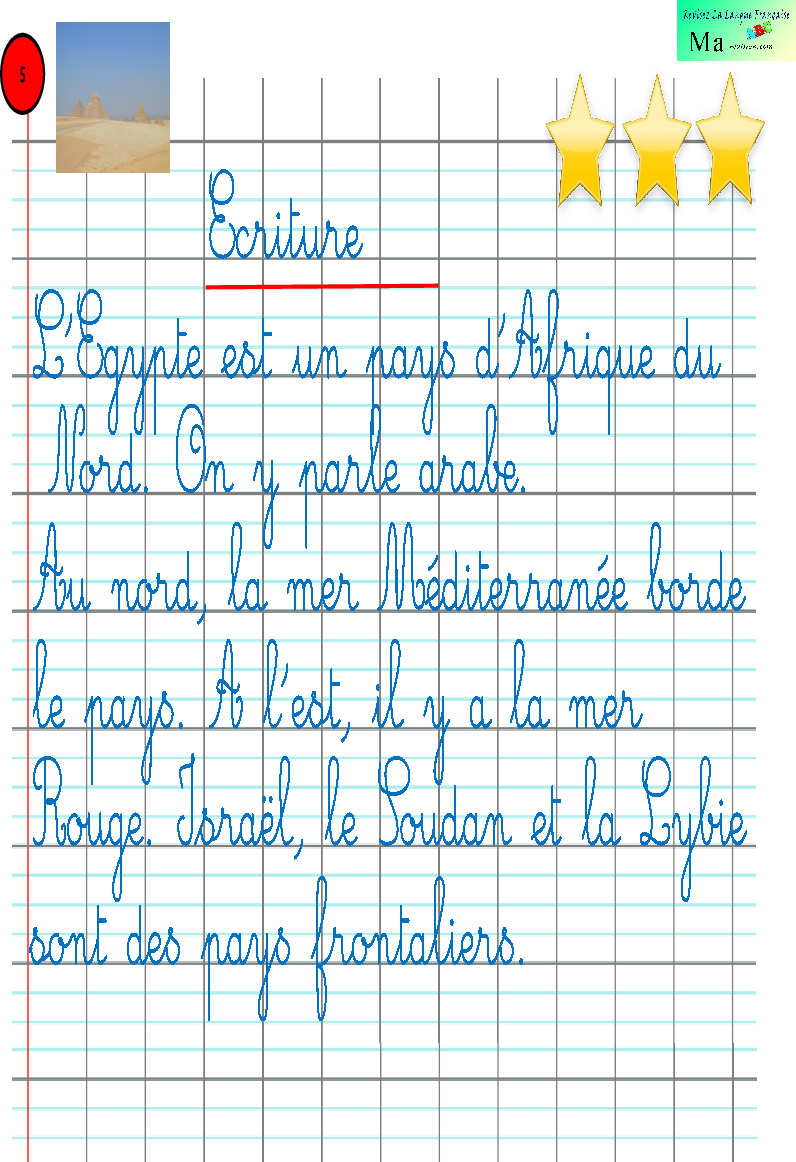 Revisez La Langue Française
Ma
5
Ecriture
L'Egypte est un pays d'Afrique du
Nord. On y parle arabe.
Au nord, la mer Méditerranée borde
le pays. A l'est, il y a la mer
Rouge. Israël, le Soudan et la Lybie
sont des pays frontaliers.